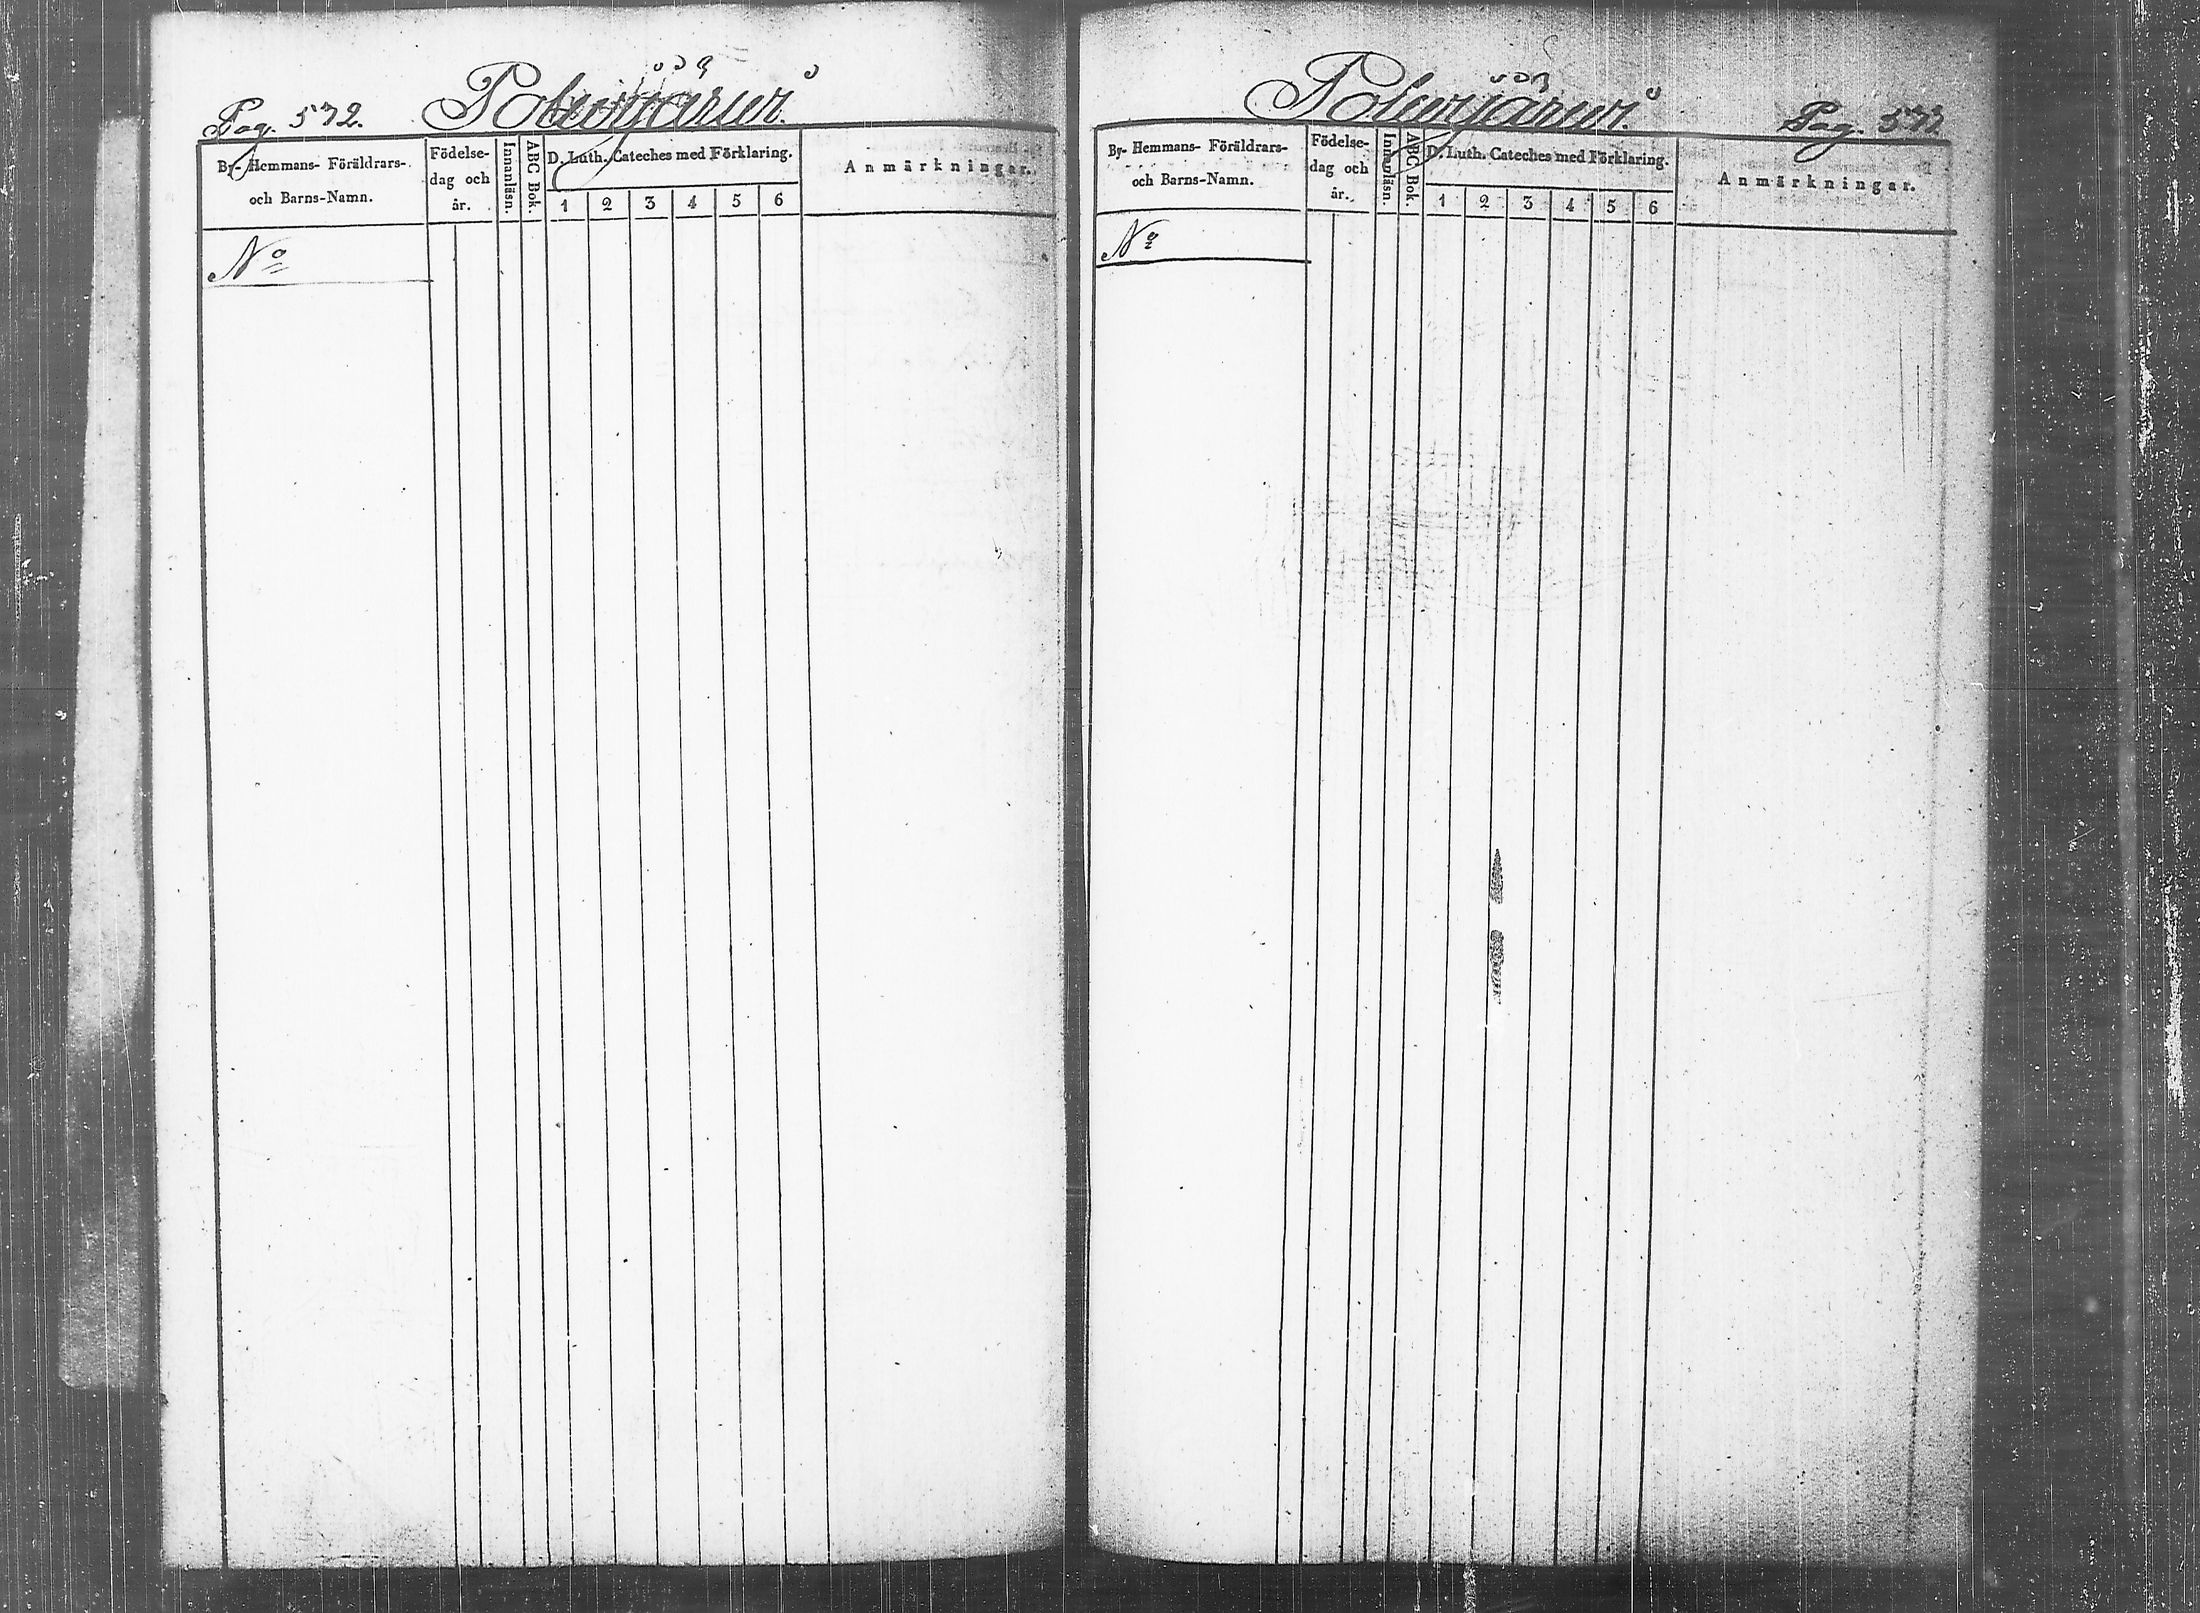 Pag. 572. Polwijärwi.
By- Hemmans- Föräldrars- och Barns-Namn.
Födelse-dag och år.
Innanläsn.
ABC Bok.
D. Luth. Cateches med Förklaring.
1 2 3 4 5 6
Anmärkningar.
No
Polwijärwi. Pag. 573
By- Hemmans- Föräldrars- och Barns-Namn.
Födelse-dag och år.
Innanläsn.
ABC Bok.
D. Luth. Cateches med Förklaring.
1 2 3 4 5 6
Anmärkningar.
No